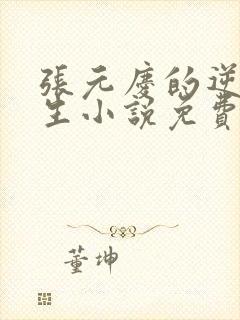 張元慶的逆
生小說免費
董坤